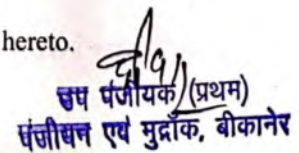 hereto.
उप पंजीयक (प्रथम)
पंजीयन एवं मुद्रांक, बीकानेर